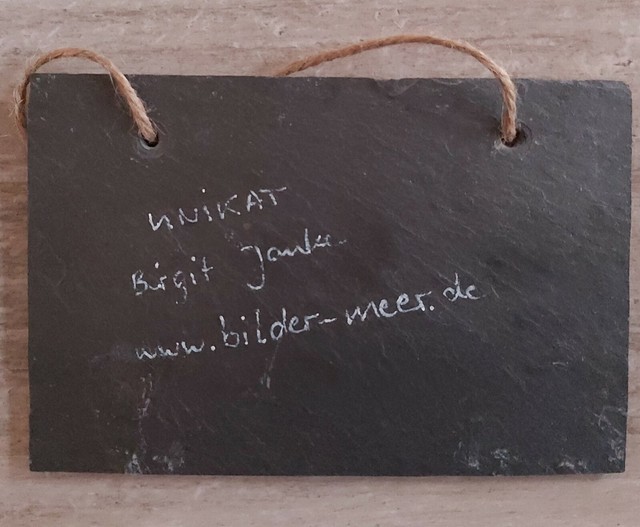 UNiKAT
Birgit Janke
www.bilder-meer.de